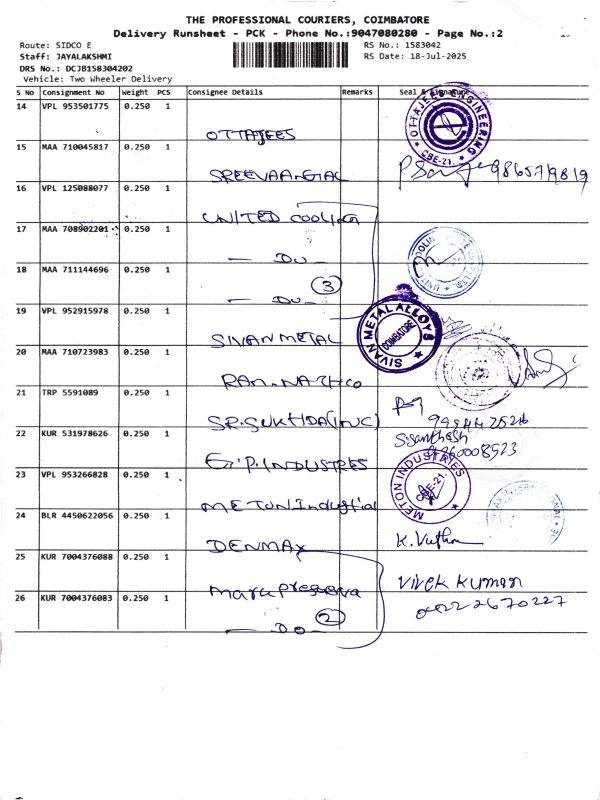 THE PROFESSIONAL COURIERS, COIMBATORE
Delivery Runsheet - PCK - Phone No.:9047080280 - Page No.:2
Route: SIDCO E
RS No.: 1583042
Staff: JAYALAKSHMI
RS Date: 18-Jul-2025
DRS No.: DCJB158304202
Vehicle: Two Wheeler Delivery
S No Consignment No Weight PCS Consignee Details Remarks Seal & Signature
14 VPL 953501775 0.250 1 OTTAJEES
OTTAJEES ENGINEERING CBE-21.
15 MAA 710045817 0.250 1
16 VPL 125088077 0.250 1 UNITED COOLING
17 MAA 708902201 0.250 1 - Do -
18 MAA 711144696 0.250 1 - Do - 3
19 VPL 952915978 0.250 1 SIVAN METAL
SIVAN METAL ALLOYS COIMBATORE
20 MAA 710723983 0.250 1
21 TRP 5591089 0.250 1 SR.SUKHDA(INC)
22 KUR 531978626 0.250 1 G.P.INDUSTRES
S.Santhosh
23 VPL 953266828 0.250 1 METON Industrial
METON INDUSTRIES CBE-21.
24 BLR 4450622056 0.250 1 DENMAX
25 KUR 7004376088 0.250 1
Vivek Kumar
26 KUR 7004376083 0.250 1 - Do - 2